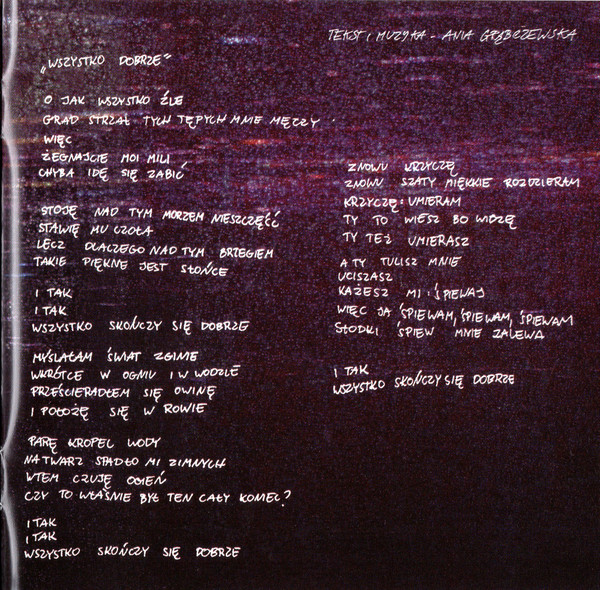 TEKST I MUZYKA - ANIA GRĄBCZEWSKA
„WSZYSTKO DOBRZE"
O JAK WSZYSTKO ŹLE
GRAD STRZAŁ TYCH TĘPYCH MNIE MĘCZY
WIĘC
ŻEGNAJCIE MOI MILI
CHYBA IDĘ SIĘ ZABIĆ
STOJĘ NAD TYM MORZEM NIESZCZĘŚĆ
STAWIĘ MU CZOŁA
LECZ DLACZEGO NAD TYM BRZEGIEM
TAKIE PIĘKNE JEST SŁOŃCE
I TAK
I TAK
WSZYSTKO SKOŃCZY SIĘ DOBRZE
MYŚLAŁAM ŚWIAT ZGINIE
WKRÓTCE W OGNIU I W WODZIE
PRZEŚCIERADŁEM SIĘ OWINĘ
I POŁOŻĘ SIĘ W ROWIE
PARĘ KROPEL WODY
NA TWARZ SPADŁO MI ZIMNYCH
WTEM CZUJĘ OGIEŃ
CZY TO WŁAŚNIE BYŁ TEN CAŁY KONIEC?
I TAK
I TAK
WSZYSTKO SKOŃCZY SIĘ DOBRZE
ZNOWU KRZYCZĘ
ZNOWU SZATY MIĘKKIE ROZDZIERAM
KRZYCZĘ: UMIERAM
TY TO WIESZ BO WIDZĘ
TY TEŻ UMIERASZ
A TY TULISZ MNIE
UCISZASZ
KAŻESZ MI: ŚPIEWAJ
WIĘC JA ŚPIEWAM, ŚPIEWAM, ŚPIEWAM
SŁODKI ŚPIEW MNIE ZALEWA
I TAK
WSZYSTKO SKOŃCZY SIĘ DOBRZE